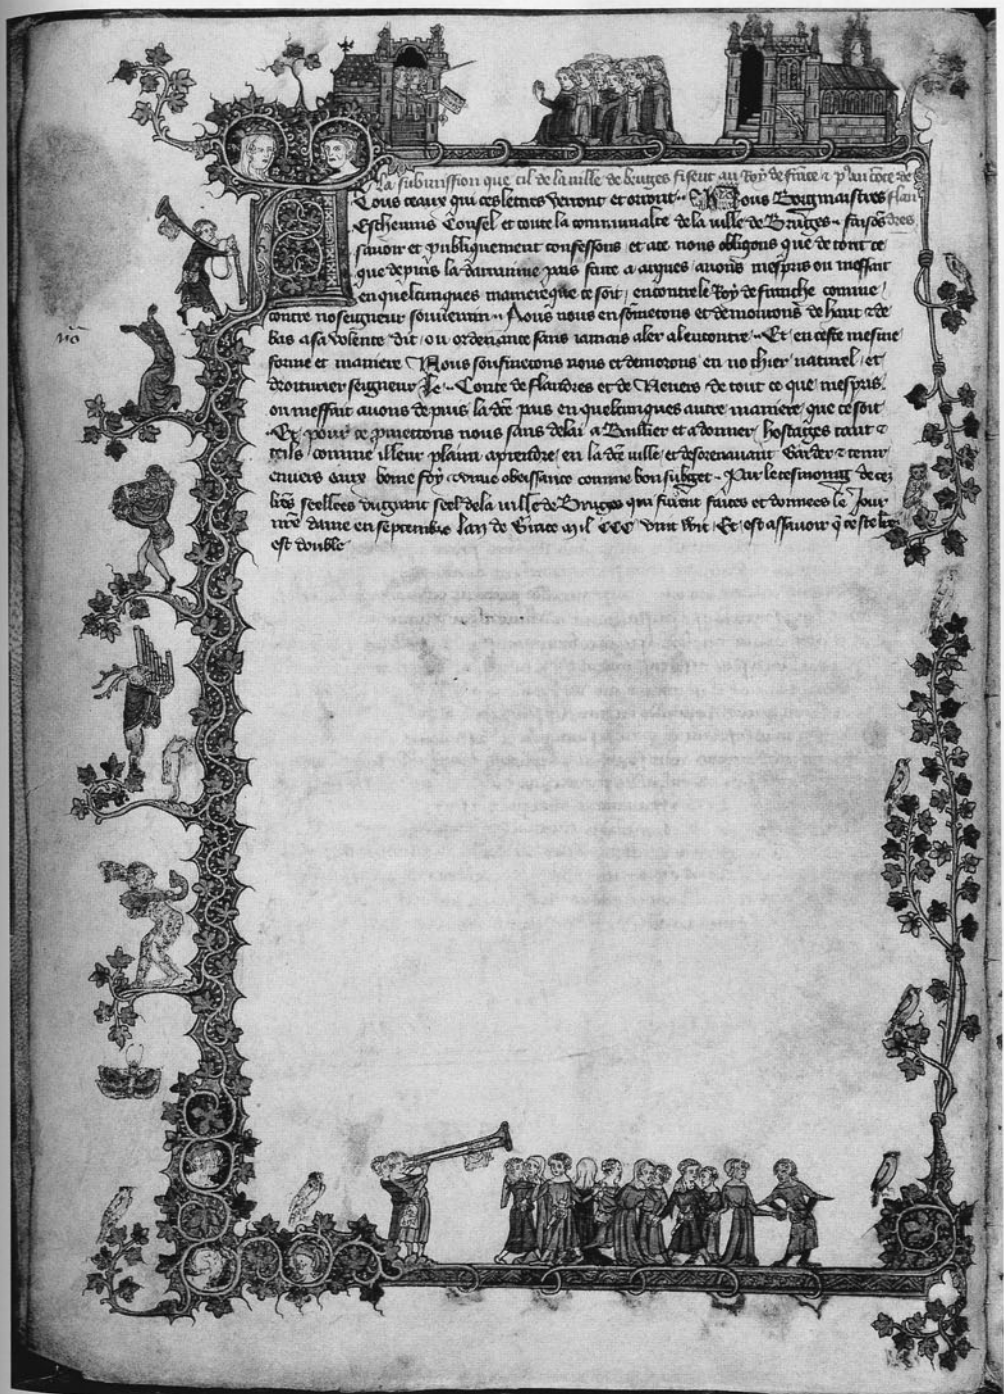 La submission que cil de la ville de bruges fisent au Roy de france & p̃ au conte de flan
dres
A Tous ceaux qui ces lettres verront et orront·· Nous Bourgmaistres
Eschevins Consel et toute la communalte de la ville de Bruges·· faisōs
savoir et publiquement confessons et a ce nous obligons que de tout ce
que depuis la darraine pais faite a arques avons mespris ou meffait
en quelcunques maniere que ce soit / encontre le Roy de franche comme /
contre no seigneur souverain·· Nous nous en sōmetons et demoirons de haut & de
bas a sa volente dit / ou ordenance sans iamais aler alencontre·· Et en ceste mesme
forme et maniere Nous sousmetons nous et demorons en no chier naturel / et
droiturier seigneur Le·· Conte de flandres et de Nevers de tout ce que mespris
ou meffait avons depuis la dc̃e pais en quelcunques autre maniere que ce soit
·· Et pour ce prometons nous sans delai a Baillier et a donner / hostages tant &
teils / comme il leur plaira a prendre / en la dc̃e ville / et desorenavant Garder & tenir
envers eaux bonne foy & vraie obeissance comme bon subget·· Par le tesmoing de cez
lr̃es seellees du grant seel de la ville de Bruges qui furent faites et donnees le Jour
nr̃e dame en septembre Lan de Grace mil CCC vint wit / Et est assavoir q̄ ceste lr̃e
est double